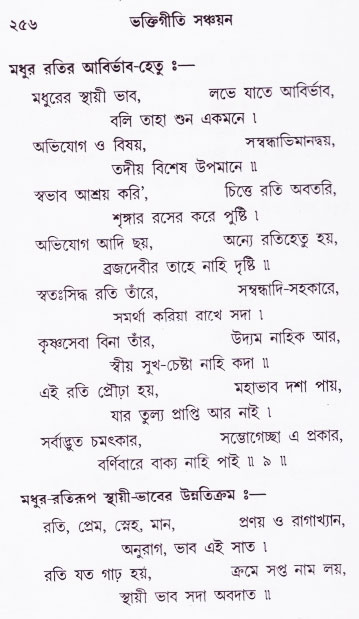 ২৫৬ ভক্তিগীতি সঞ্চয়ন
মধুর রতির আবির্ভাব-হেতু ঃ—
মধুরের স্থায়ী ভাব, লভে যাতে আবির্ভাব,
বলি তাহা শুন একমনে ।
অভিযোগ ও বিষয়, সম্বন্ধাভিমানদ্বয়,
তদীয় বিশেষ উপমানে ॥
স্বভাব আশ্রয় করি’, চিত্তে রতি অবতরি,
শৃঙ্গার রসের করে পুষ্টি ।
অভিযোগ আদি ছয়, অন্যে রতিহেতু হয়,
ব্রজদেবীর তাহে নাহি দৃষ্টি ॥
স্বতঃসিদ্ধ রতি তাঁরে, সম্বন্ধাদি-সহকারে,
সমর্থা করিয়া রাখে সদা ।
কৃষ্ণসেবা বিনা তাঁর, উদ্যম নাহিক আর,
স্বীয় সুখ-চেষ্টা নাহি কদা ॥
এই রতি প্রৌঢ়া হয়, মহাভাব দশা পায়,
যার তুল্য প্রাপ্তি আর নাই ।
সর্বাদ্ভুত চমৎকার, সম্ভোগেচ্ছা এ প্রকার,
বর্ণিবারে বাক্য নাহি পাই ॥ ৯ ॥
মধুর-রতিরূপ স্থায়ী-ভাবের উন্নতিক্রম ঃ—
রতি, প্রেম, স্নেহ, মান, প্রণয় ও রাগাখ্যান,
অনুরাগ, ভাব এই সাত ।
রতি যত গাঢ় হয়, ক্রমে সপ্ত নাম লয়,
স্থায়ী ভাব সদা অবদাত ॥